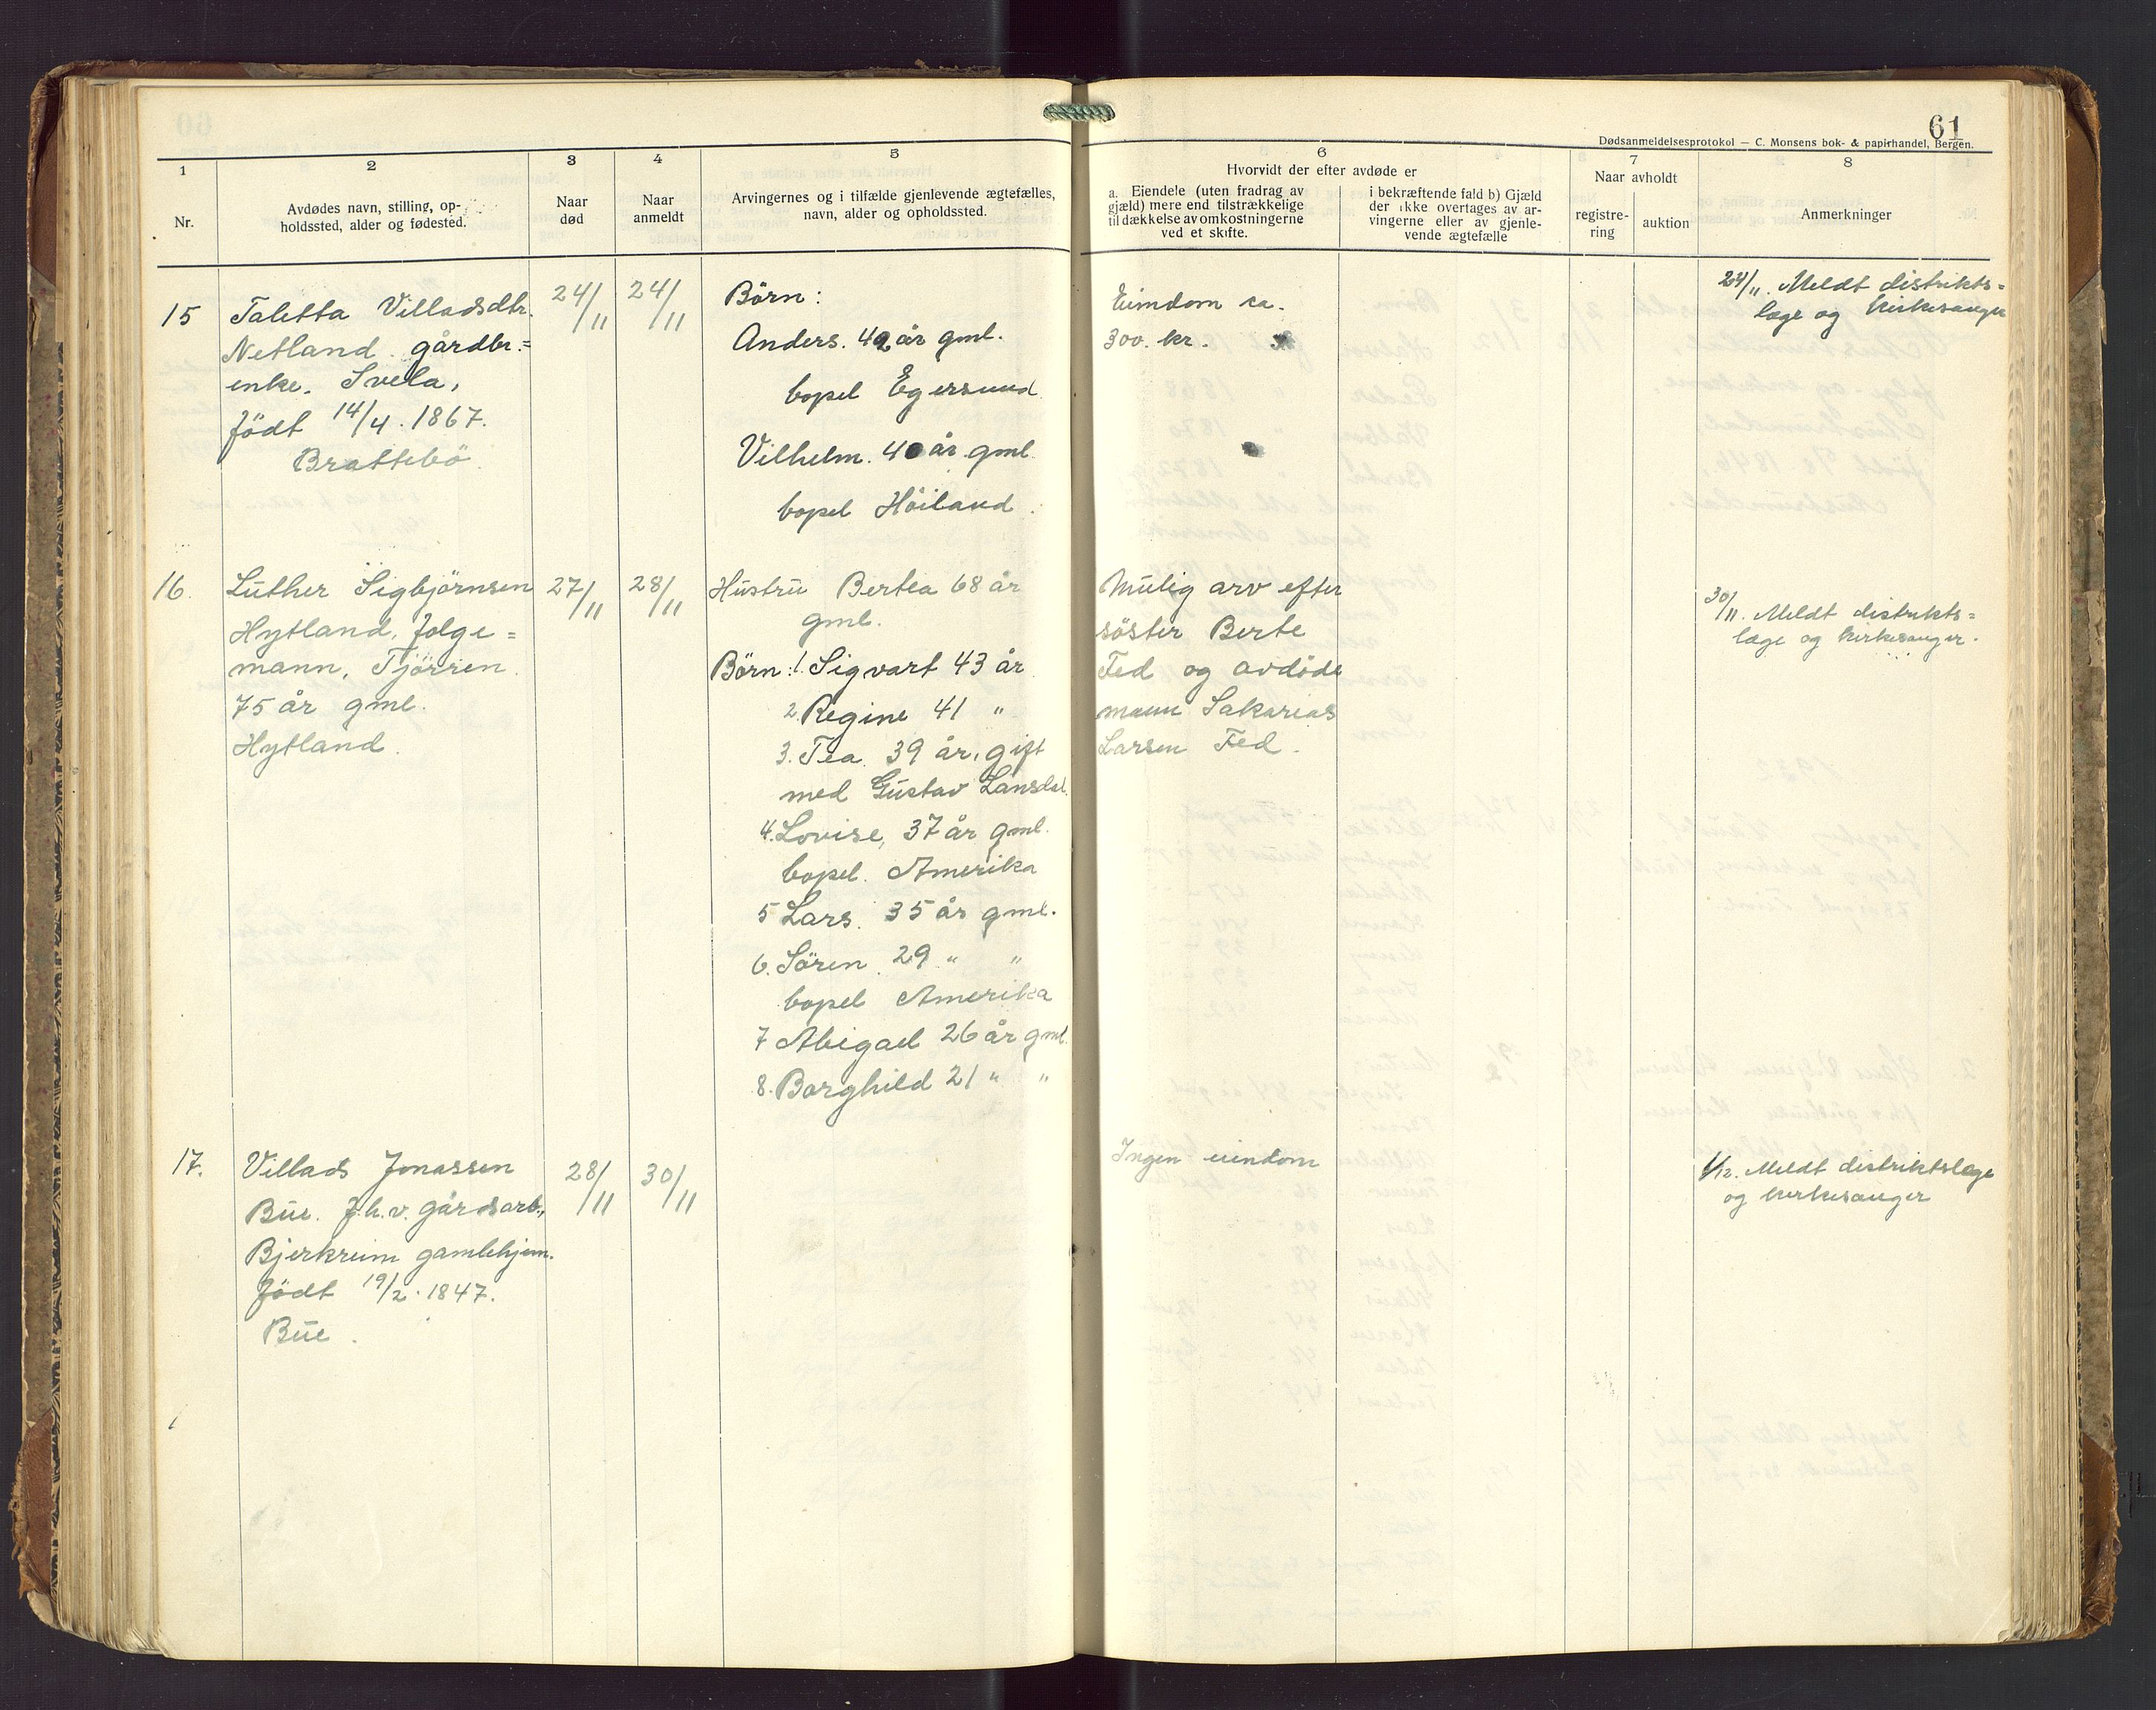 61
Dødsanmeldelsesprotokol — C. Monsens bok- & papirhandel, Bergen.
1
Nr.
2
Avdødes navn, stilling, op-
holdssted, alder og fødested.
3
Naar
død
4
Naar
anmeldt
5
Arvingernes og i tilfælde gjenlevende ægtefælles,
navn, alder og opholdssted.
6
Hvorvidt der efter avdøde er
a. Eiendele (uten fradrag av
gjæld) mere end tilstrækkelige
til dækkelse av omkostningerne
ved et skifte.
i bekræftende fald b) Gjæld
der ikke overtages av ar-
vingerne eller av gjenle-
vende ægtefælle
7
Naar avholdt
registre-
ring
auktion
8
Anmerkninger
15
Taletta Villadsdtr.
Netland gårdbr.=
enke. Svela,
födt 14/4. 1867.
Brattebö.
24/11
24/11
Börn:
Anders. 42 år gml.
bopel Egersund
Vilhelm. 40 år gml.
bopel Höiland.
Eiendom ca.
300. kr.
24/11. Meldt distrikts=
læge og kirkesanger
16.
Luther Sigbjörnsen
Hytland, folge=
mann, Tjörren.
75 år gml.
Hytland.
27/11
28/11
Hustru Bertea 68 år
gml.
Börn: 1. Sigvart 43 år
2. Regine 41 "
3. Tea. 39 år, gift
med Gustav Lansdal.
4. Lovise, 37 år gml.
bopel. Amerika
5 Lars. 35 år gml.
6. Sören. 29 " "
bopel Amerika
7 Abigael 26 år gml.
8. Borghild 21 " "
Mulig arv efter
söster Berte
Fed og avdöde
mann Sakarias
Larsen Fed.
30/11. Meldt distrikts=
læge og kirkesanger.
17.
Villads Jonassen
Bue. f.h.v. gårdsarb.,
Bjerkreim gamlehjem.
födt 19/2. 1847.
Bue.
28/11
30/11
Ingen eiendom
1/12. Meldt distriktslæge
og kirkesanger